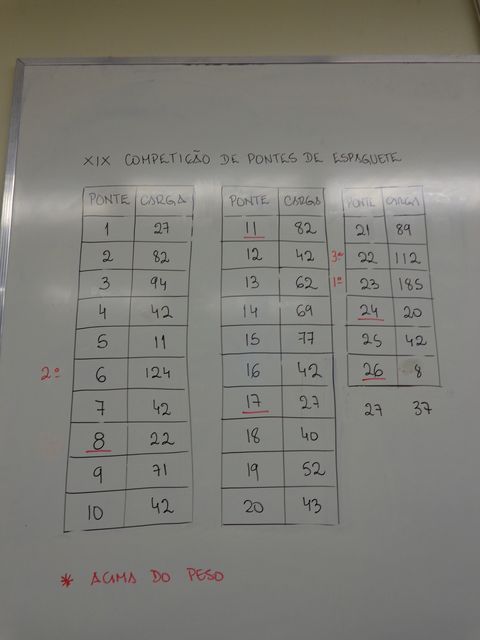 XIX COMPETIÇÃO DE PONTES DE ESPAGUETE
PONTE CARGA
1 27
2 82
3 94
4 42
5 11
2º 6 124
7 42
8 22
9 71
10 42
PONTE CARGA
11 82
12 42
13 62
14 69
15 77
16 42
17 27
18 40
19 52
20 43
PONTE CARGA
21 89
3º 22 112
1º 23 185
24 20
25 42
26 8
27 37
* ACIMA DO PESO